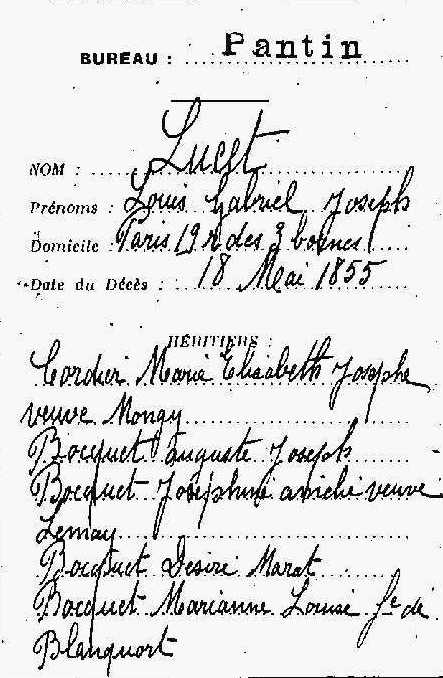 BUREAU : Pantin
NOM : Lucet
Prénoms : Louis Gabriel Joseph
Domicile : Paris 19 r des 3 bornes
Date du Décès : 18 Mai 1855
HÉRITIERS :
Cordier Marie Elisabeth Josephe
veuve Mongy
Bocquet auguste Joseph
Bocquet Josephine veuve
Lemay
Bocquet Desiré Marat
Bocquet Marianne Louise fe de
Blanquort